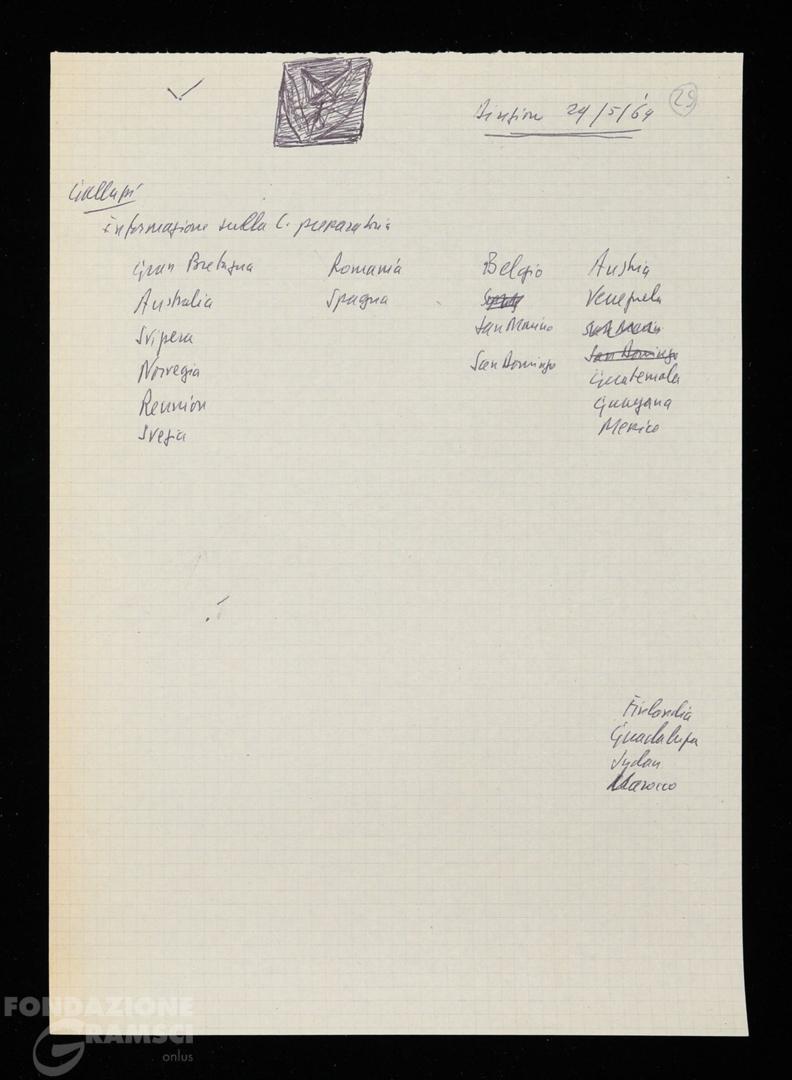 Direzione 29/5/69
29
Galluzzi
informazione sulla C. preparatoria
Gran Bretagna
Australia
Svizzera
Norvegia
Reunión
Svezia
Romania
Spagna
Belgio
San Marino
San Domingo
Austria
Venezuela
San Domingo
Guatemala
Guayana
Messico
Finlandia
Guadalupa
Sudan
Marocco
FONDAZIONE
GRAMSCI
onlus